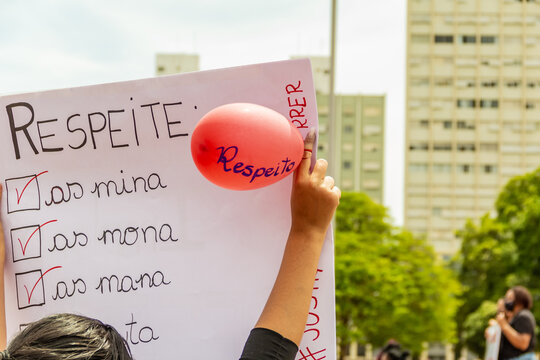 RESPEITE:
as mina
as mona
as mana
Respeito